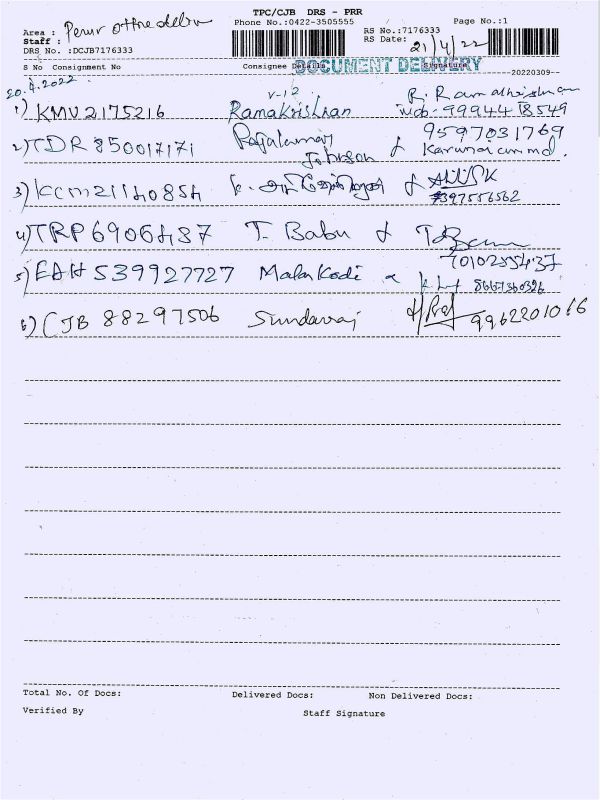 TPC/CJB DRS - PRR
Phone No.:0422-3505555
Page No.:1
Area : Perur office
Staff :
DRS No. :DCJB7176333
RS No.:7176333
RS Date: 21/4/22
S No Consignment No Consignee Details Signature
DOCUMENT DELIVERY
20220309-
20.4.2022
V-12
R. Ramakrishnan
1) KMV2175216 Ramakrishnan mob-9994418549
2) TDR850017171 Rajakumar 9597031769
Johnson
3) KCM211140854 K.
7397556562
4) TRP6906487 T. Babu
7010255437
5) EAH539927727 Malar Kodi 8667360326
6) CJB 88297506 Sundarraj 9962201066
Total No. Of Docs: Delivered Docs: Non Delivered Docs:
Verified By Staff Signature